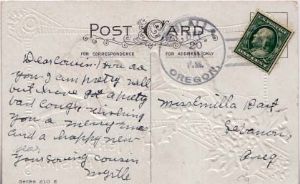 POST CARD
FOR CORRESPONDENCE
FOR ADDRESS ONLY
20
OREGON.
Dear Cousin: How are
you I am pretty well
but I have got a pretty
bad cough. Wishing
you a merry xmas
and a happy new
year,
your loving cousin
Myrtle
Miss Emilla
Lebanon,
Oreg
Series 210 E